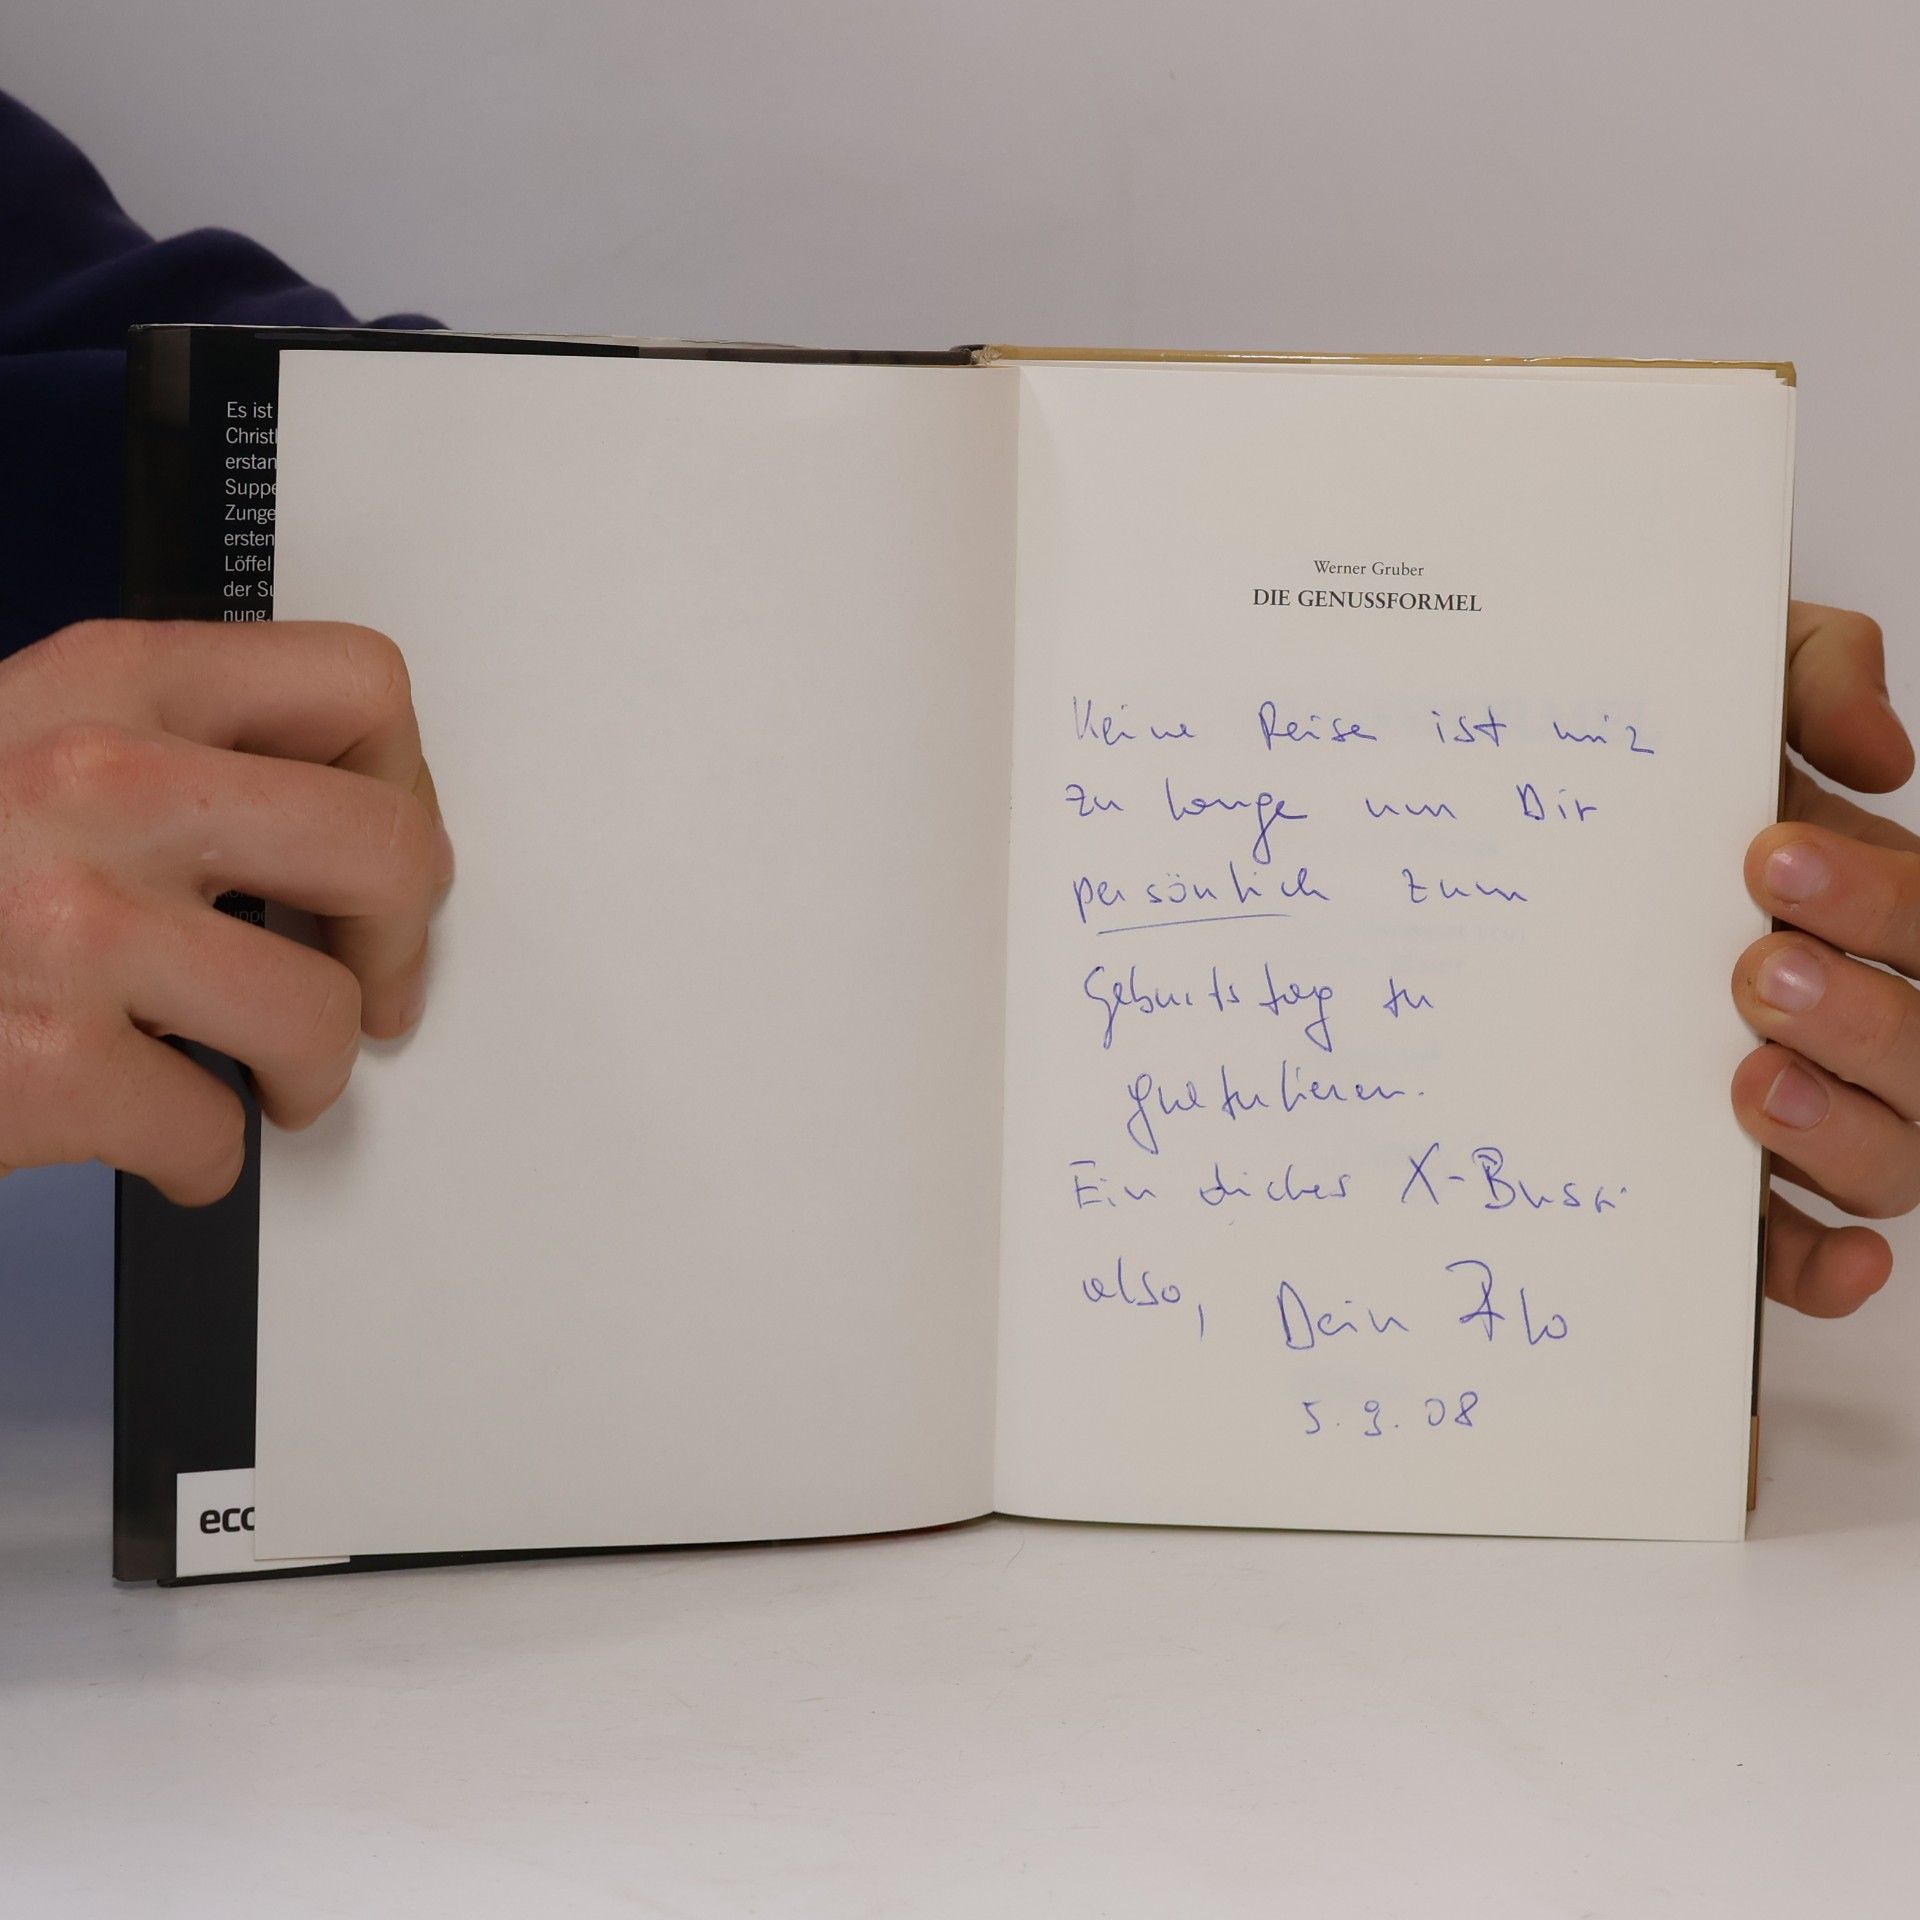 Es ist
Christ
erstan
Suppe
Zunge
ersten
Löffel
der Su
nung.
uppe
ecc
Werner Gruber
DIE GENUSSFORMEL
Keine Reise ist mir
zu lange um Dir
persönlich zum
Geburtstag zu
gratulieren.
Ein dickes X-Bussi
also, Dein Flo
5. 9. 08